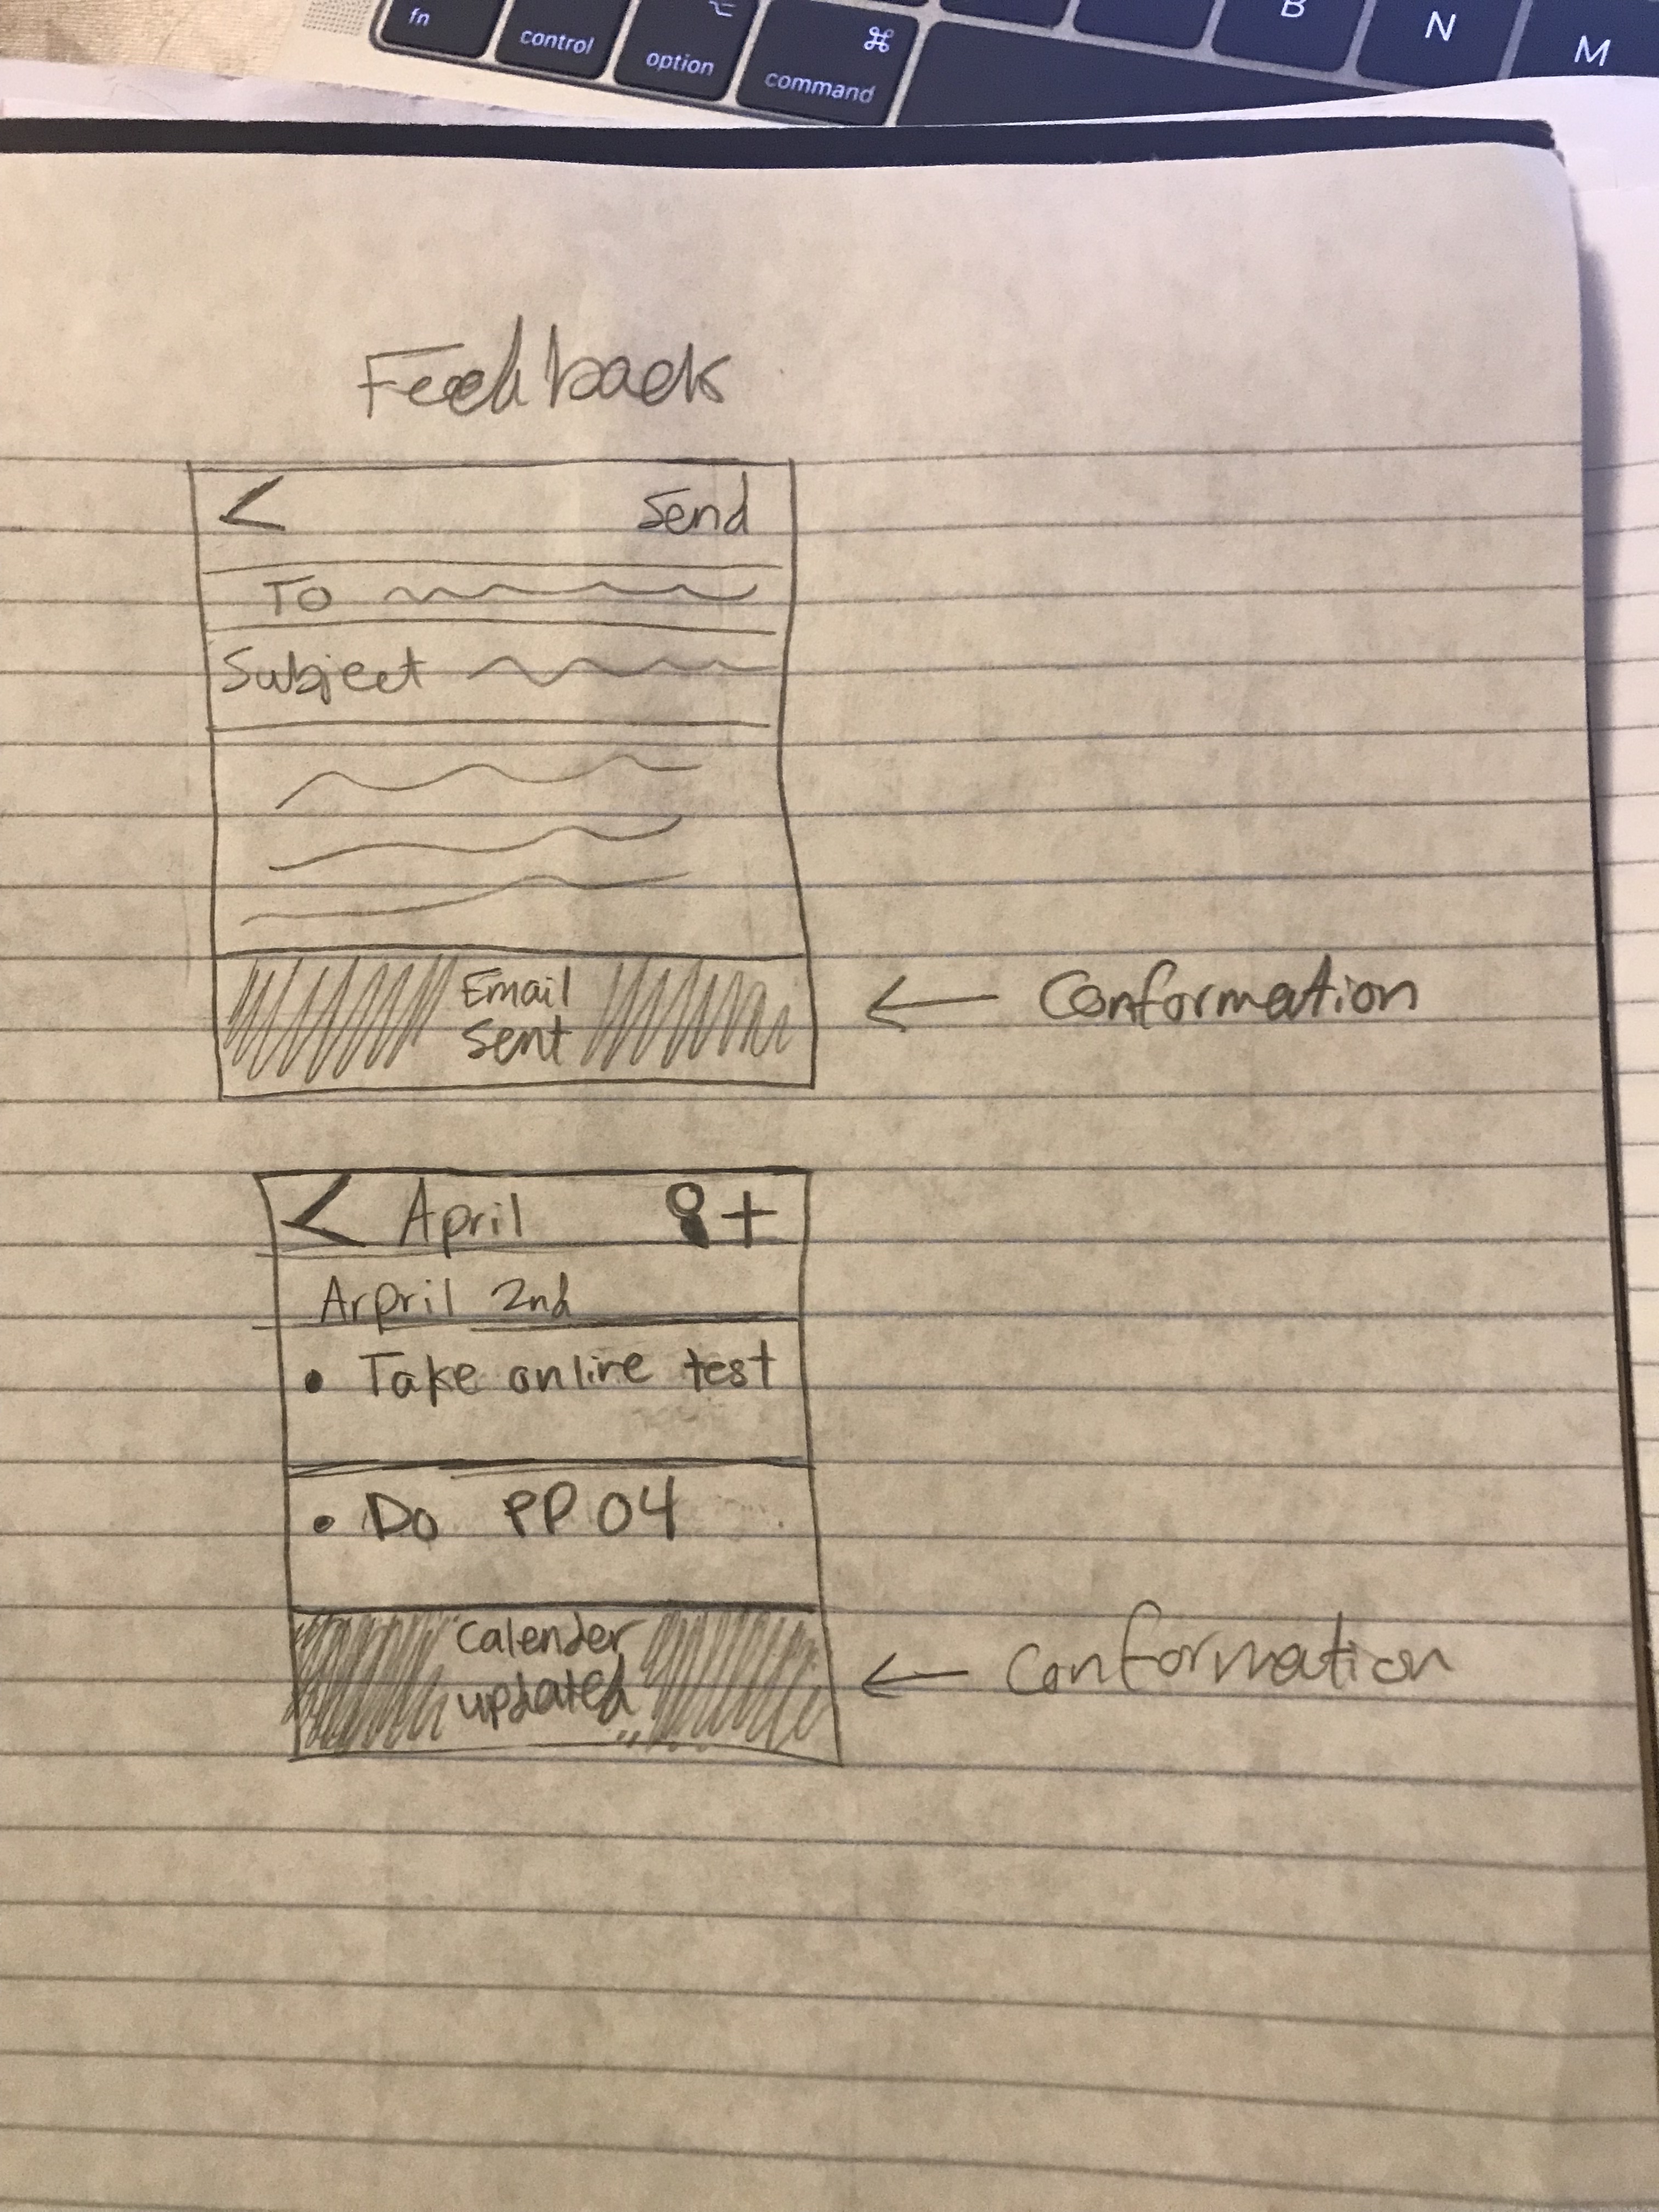 fn control option ⌥ command ⌘ B N M
Feedback
< Send
To
Subject
Email
Sent
← Conformation
< April +
Arpril 2nd
• Take online test
• Do PP 04
Calender
updated
← Conformation